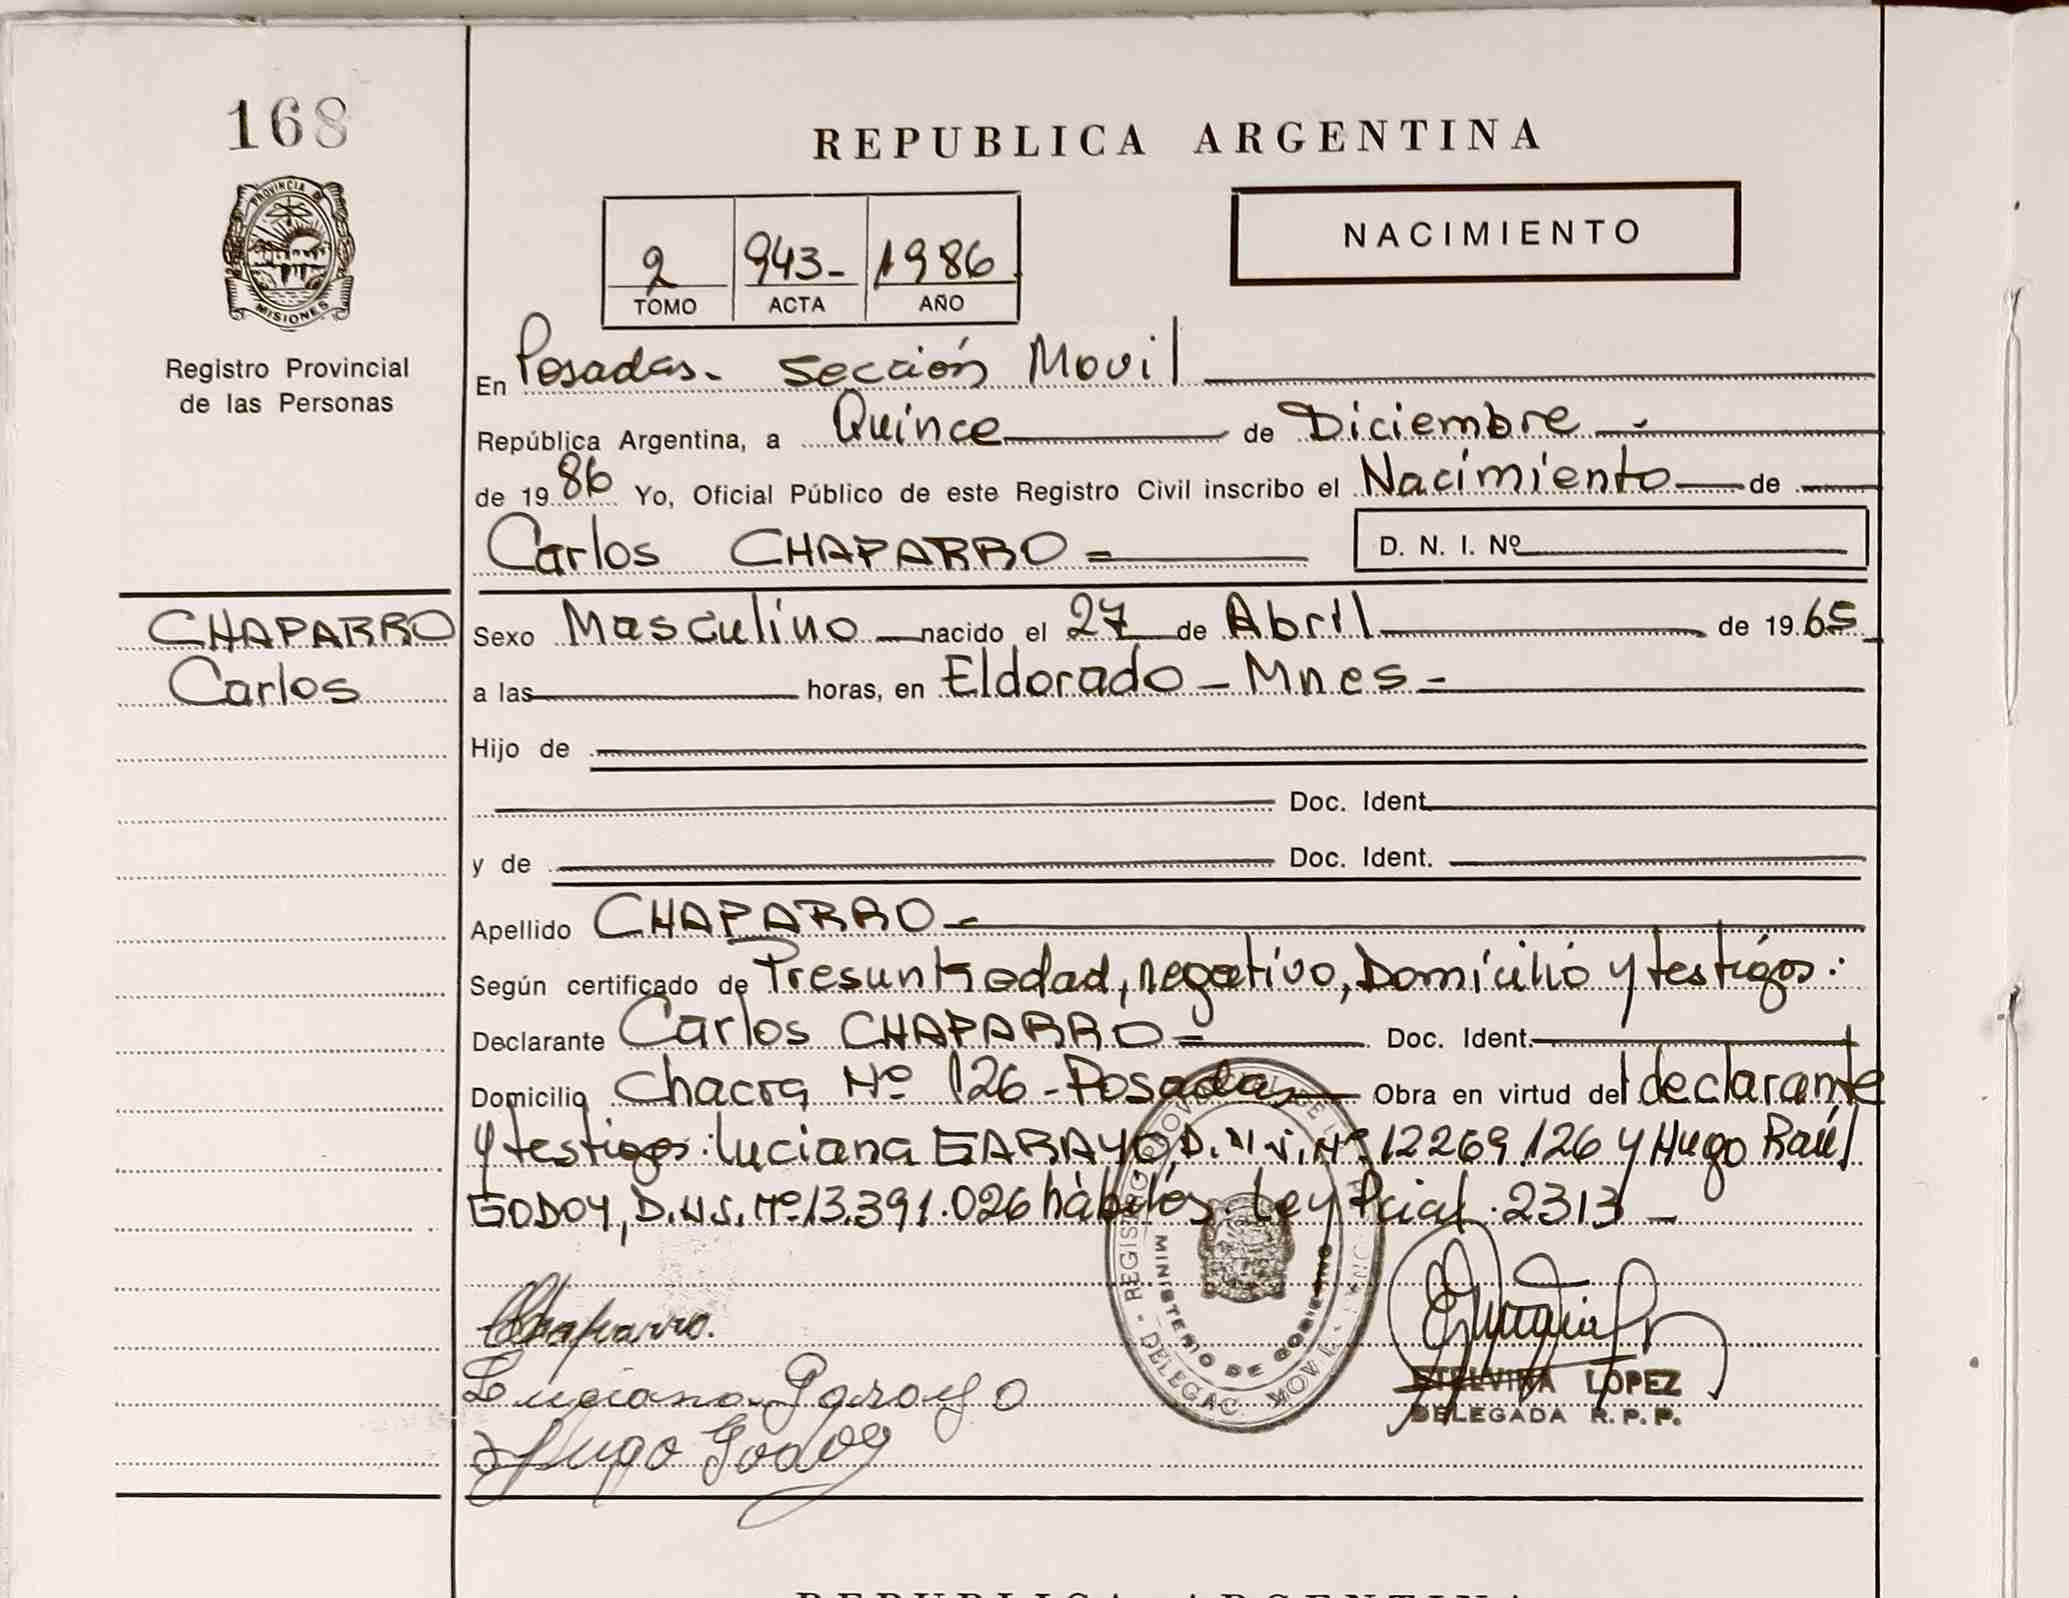 168
REPUBLICA ARGENTINA
PROVINCIA DE
MISIONES
Registro Provincial
de las Personas
NACIMIENTO
2 943- 1986
TOMO ACTA AÑO
En Posadas- sección Movil
República Argentina, a Quince de Diciembre
de 1986 Yo, Oficial Público de este Registro Civil inscribo el Nacimiento de
Carlos CHAPARRO = D. N. I. Nº
CHAPARRO
Carlos
Sexo Masculino nacido el 27 de Abril de 1965
a las horas, en Eldorado - Mnes -
Hijo de
Doc. Ident.
y de Doc. Ident.
Apellido CHAPARRO -
Según certificado de Presunta edad, negativo, Domicilio y testigos:
Declarante Carlos CHAPARRO = Doc. Ident.
Domicilio Chacra Nº 126 - Posadas Obra en virtud del declarante
y testigos: Luciana GARAYO, D.N.I. Nº 12269.126 y Hugo Raúl
GODOY, D.N.I. Nº 13.391.026 hábiles. Ley Pcial. 2313 -
Chaparro.
Luciana Garayo
Hugo Godoy
REGISTRO PROVINCIAL DE
MINISTERIO DE GOBIERNO
DELEGAC. MOVIL
ETELVINA LOPEZ
DELEGADA R.P.P.
REPUBLICA ARGENTINA